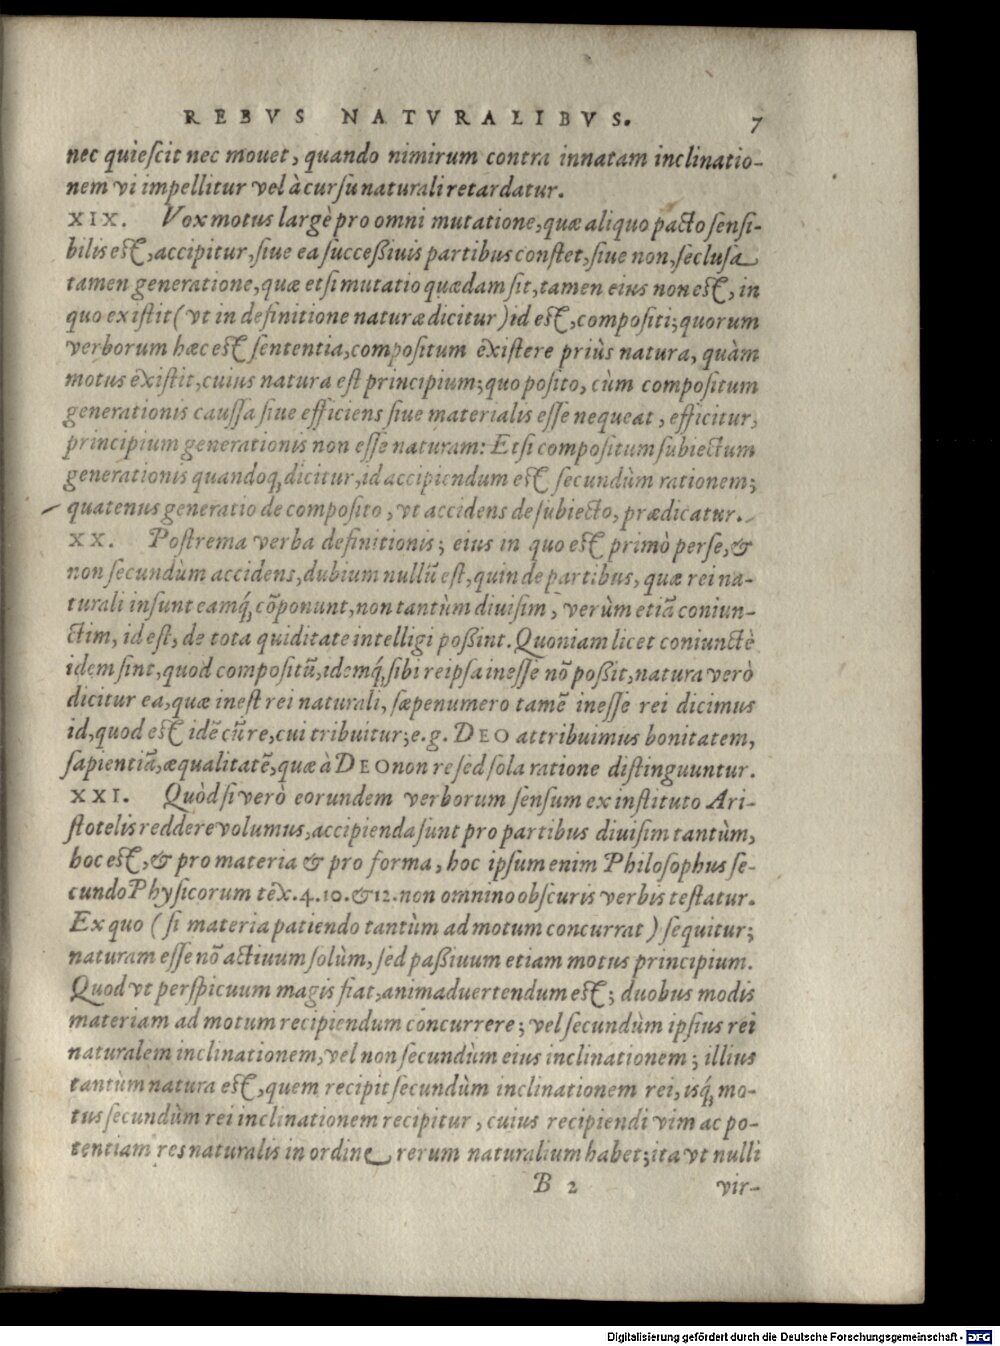 REBVS NATVRALIBVS. 7
nec quiescit nec mouet, quando nimirum contra innatam inclinatio-
nem vi impellitur vel à cursu naturali retardatur.
XIX. Vox motus largè pro omni mutatione, quæ aliquo pacto sensi-
bilis est, accipitur, siue ea successiuis partibus constet, siue non, seclusa
tamen generatione, quæ etsi mutatio quædam sit, tamen eius non est, in
quo existit (vt in definitione naturæ dicitur) id est, compositi; quorum
verborum hæc est sententia, compositum existere priùs natura, quàm
motus existit, cuius natura est principium; quo posito, cùm compositum
generationis caussa siue efficiens siue materialis esse nequeat, efficitur,
principium generationis non esse naturam: Etsi compositum subiectum
generationis quandoq́; dicitur, id accipiendum est secundùm rationem;
quatenus generatio de composito, vt accidens de subiecto, prædicatur.
XX. Postrema verba definitionis; eius in quo est primò per se, &
non secundùm accidens, dubium nullū est, quin de partibus, quæ rei na-
turali insunt eamq́; cōponunt, non tantùm diuisim, verùm etiā coniun-
ctim, id est, de tota quiditate intelligi possint. Quoniam licet coniunctè
idem sint, quod compositū, idemq́; sibi reipsa inesse nō possit, natura verò
dicitur ea, quæ inest rei naturali, sæpenumero tamē inesse rei dicimus
id, quod est idē cū re, cui tribuitur; e.g. DEO attribuimus bonitatem,
sapientiā, æqualitatē, quæ à DEO non re sed sola ratione distinguuntur.
XXI. Quòd si verò eorundem verborum sensum ex instituto Ari-
stotelis reddere volumus, accipienda sunt pro partibus diuisim tantùm,
hoc est, & pro materia & pro forma, hoc ipsum enim Philosophus se-
cundo Physicorum tēx. 4. 10. & 12. non omnino obscuris verbis testatur.
Ex quo (si materia patiendo tantùm ad motum concurrat) sequitur;
naturam esse nō actiuum solùm, sed passiuum etiam motus principium.
Quod vt perspicuum magis fiat, animaduertendum est; duobus modis
materiam ad motum recipiendum concurrere; vel secundùm ipsius rei
naturalem inclinationem, vel non secundùm eius inclinationem; illius
tantùm natura est, quem recipit secundùm inclinationem rei, isq́; mo-
tus secundùm rei inclinationem recipitur, cuius recipiendi vim ac po-
tentiam res naturalis in ordine rerum naturalium habet; ita vt nulli
B 2 vir-
Digitalisierung gefördert durch die Deutsche Forschungsgemeinschaft - DFG